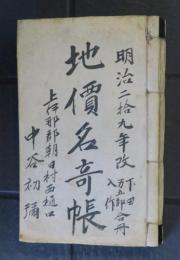 明治二拾九年改
下田
万五郎合冊
入作
地價名寄帳
上伊那郡朝日村西樋口
中谷初彌